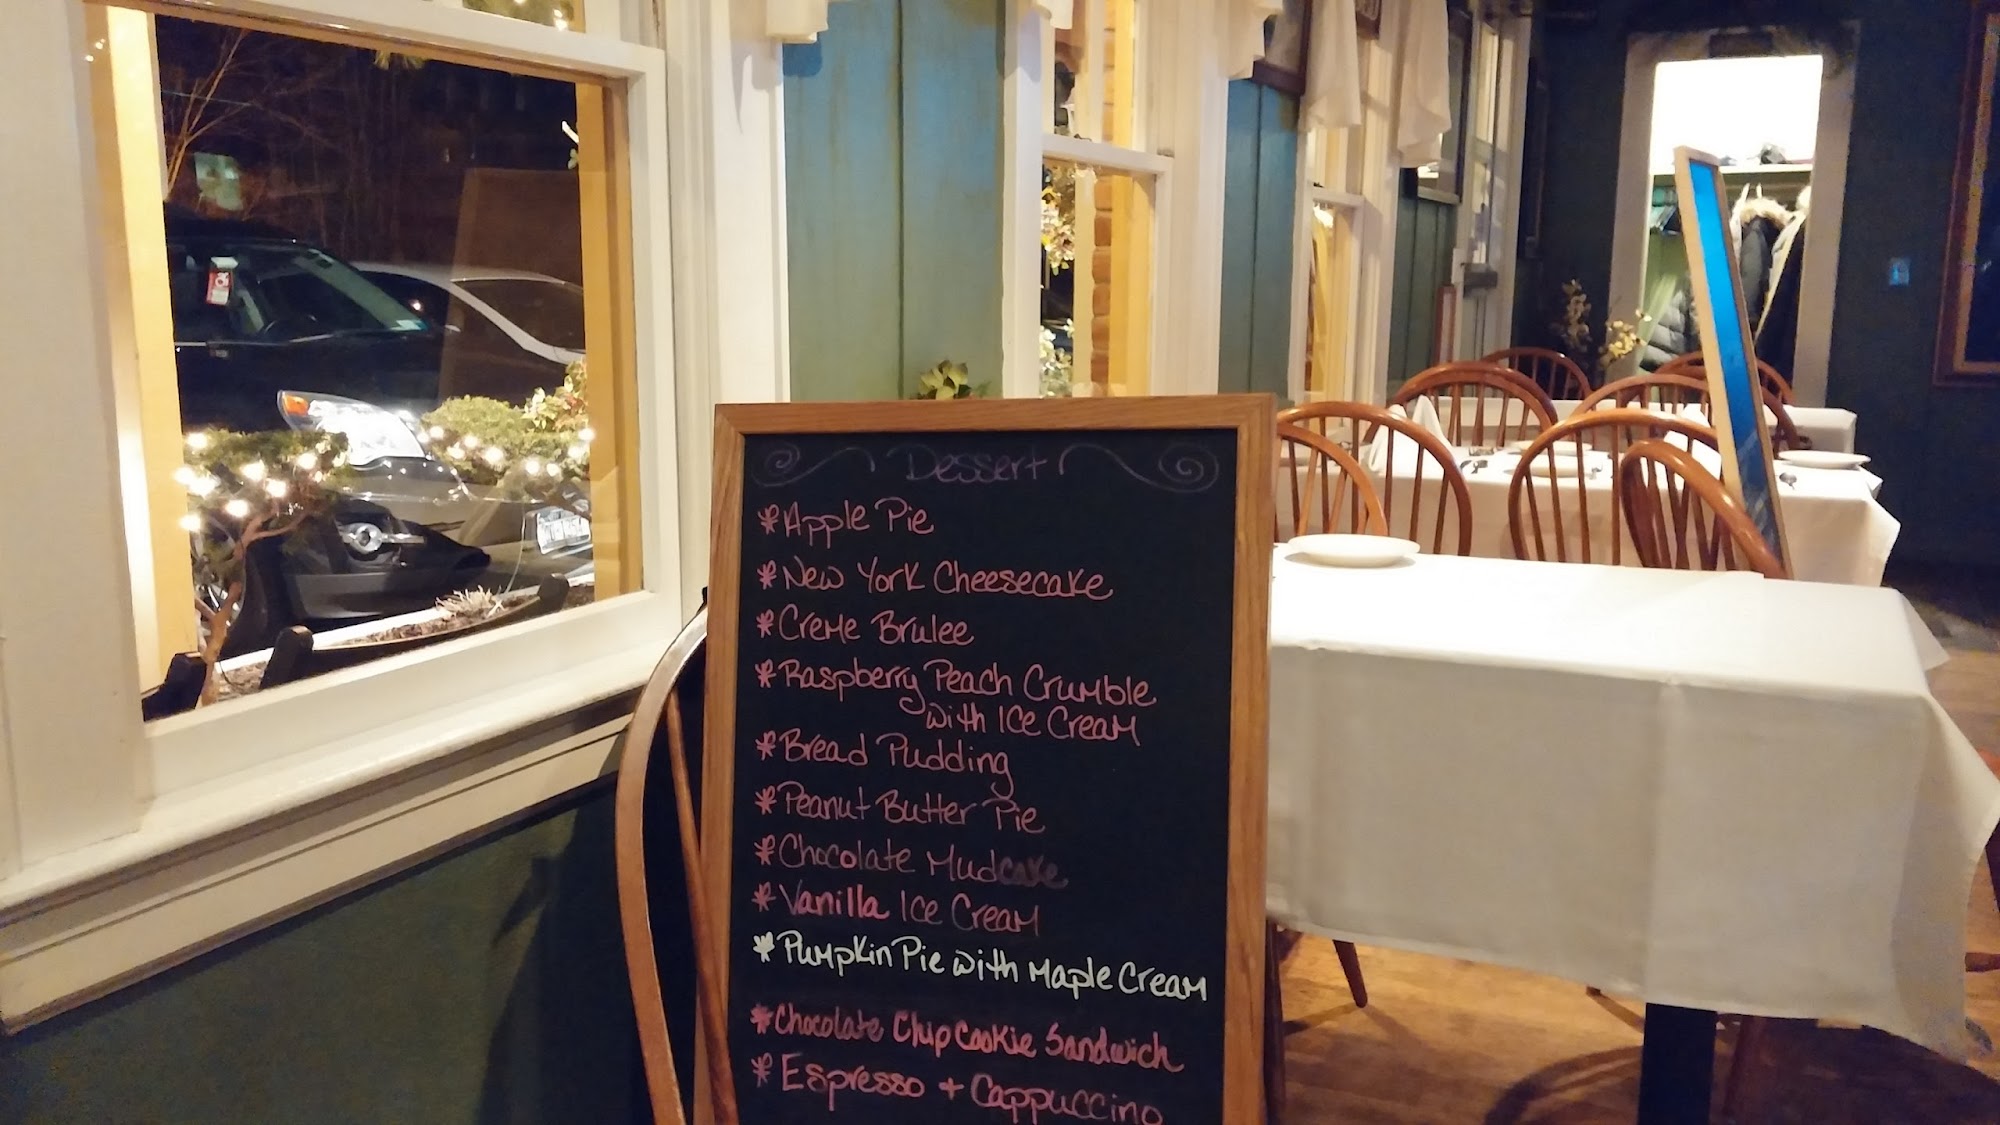 Dessert
* Apple Pie
* New York Cheesecake
* Creme Brulee
* Raspberry Peach Crumble
with Ice Cream
* Bread Pudding
* Peanut Butter Pie
* Chocolate Mudcake
* Vanilla Ice Cream
* Pumpkin Pie with Maple Cream
* Chocolate Chip Cookie Sandwich
* Espresso + Cappuccino